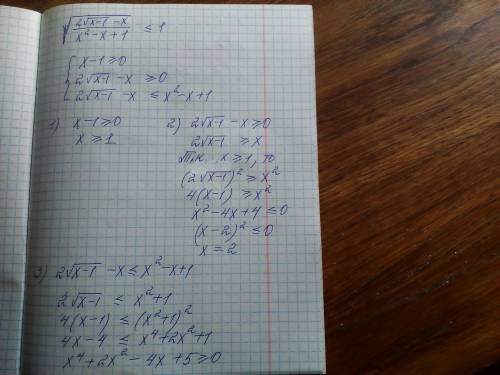 √((2√(x-1) - x)/(x² - x + 1)) ≤ 1
{ x - 1 ≥ 0
2√(x-1) - x ≥ 0
2√(x-1) - x ≤ x² - x + 1
1) x - 1 ≥ 0
x ≥ 1
2) 2√(x-1) - x ≥ 0
2√(x-1) ≥ x
Т.к. x ≥ 1, то
(2√(x-1))² ≥ x²
4(x-1) ≥ x²
x² - 4x + 4 ≤ 0
(x-2)² ≤ 0
x = 2
3) 2√(x-1) - x ≤ x² - x + 1
2√(x-1) ≤ x² + 1
4(x-1) ≤ (x²+1)²
4x - 4 ≤ x⁴ + 2x² + 1
x⁴ + 2x² - 4x + 5 ≥ 0